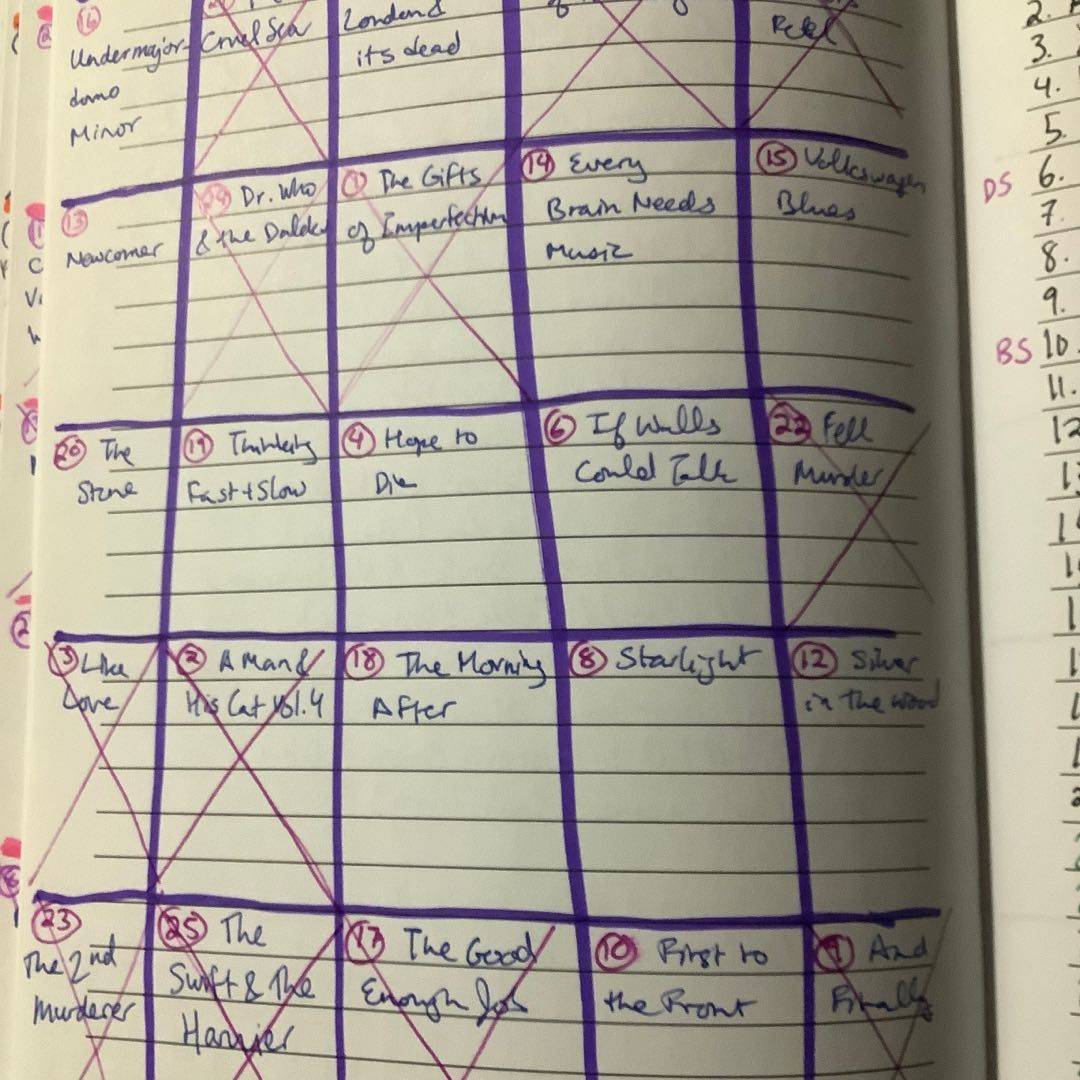 16
Undermajor-
domo
Minor
Cruel Sea
London &
its dead
13
Newcomer
24 Dr. Who
& the Daleks
1 The Gifts
of Imperfection
14 Every
Brain Needs
Music
15 Volkswagen
Blues
20 The
Stone
19 Thinking
Fast + Slow
4 Hope to
Die
6 If Walls
Could Talk
22 Fell
Murder
3 Like
Love
2 A Man &
His Cat Vol.4
18 The Morning
After
8 Starlight
12 Silver
in the wood
23
The 2nd
Murderer
25 The
Swift & The
Harrier
17 The Good
Enough Job
10 First to
the Front
9 And
Finally
2.
3.
4.
5.
DS 6.
7.
8.
9.
BS 10.
11.
12